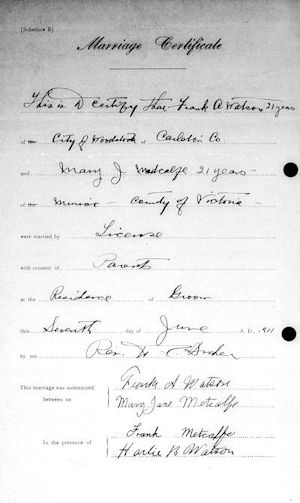 [Schedule B)
Marriage Certificate
This is to certify that Frank A Watson 21 years
of the City of Woodstock of Carleton Co
and Mary J Metcalfe 21 years -
of the - County of Victoria -
were married by License
with consent of Parents
at the Residence of Groom
this Seventh day of June A. D., 1911
by me Rev. H. C.
This marriage was solemnized
between us
Frank A Watson
Mary Jane Metcalfe
In the presence of
Frank Metcalfe
Harlie B Watson